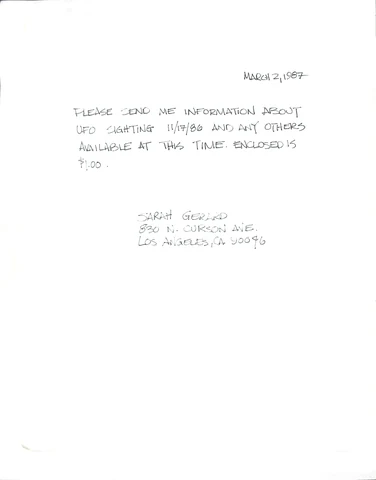 MARCH 2, 1987
PLEASE SEND ME INFORMATION ABOUT
UFO SIGHTING 11/17/86 AND ANY OTHERS
AVAILABLE AT THIS TIME. ENCLOSED IS
$1.00.
SARAH
830 N. CURSON AVE.
LOS ANGELES, CA 90046